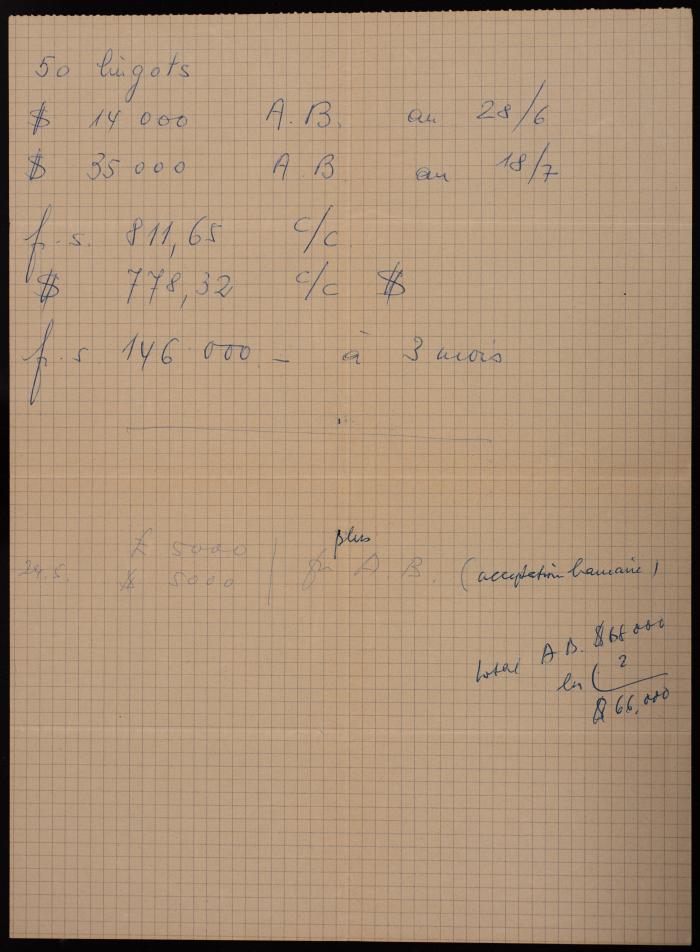 50 lingots
$ 14 000 A.B. au 28/6
$ 35 000 A.B au 18/7
f.s. 811,65 c/c.
$ 778,32 c/c $
f.s. 146.000 - à 3 mois
plus
£ 5000
24.5. $ 5000 A B. (acceptation bancaire)
total A B. $68 000
2
$ 66.000